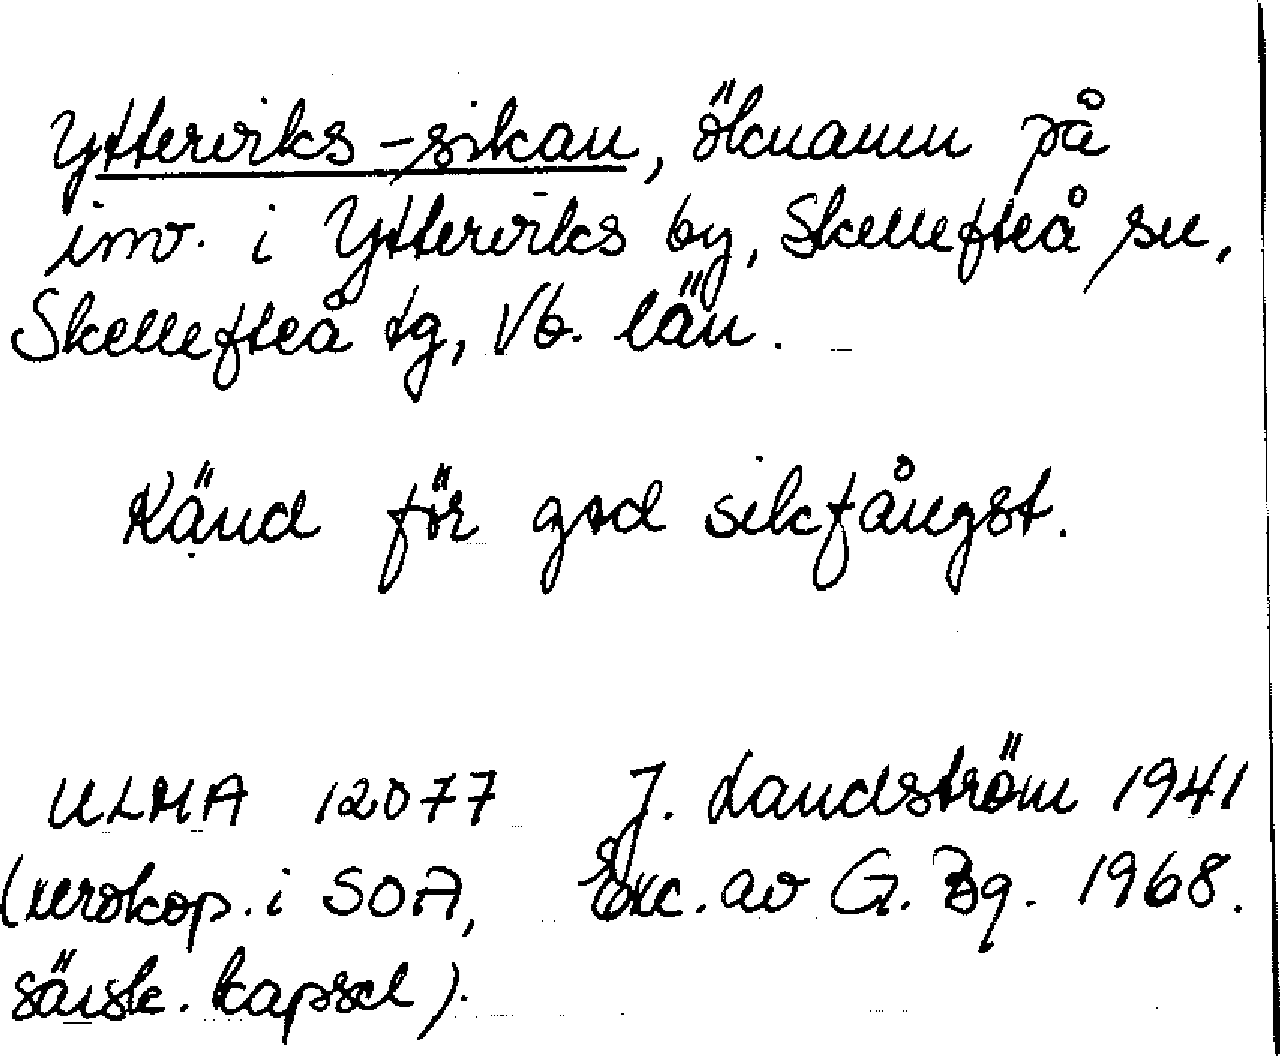 Ytterviks-sikan, öknamn på
inv. i Ytterviks by, Skellefteå sn,
Skellefteå tg, Vb. län.
Känd för god sikfångst.
ULMA 12077 J. Landström 1941
(xerokop. i SOA, Exc. av G. Bg. 1968.
särsk. kapsel).